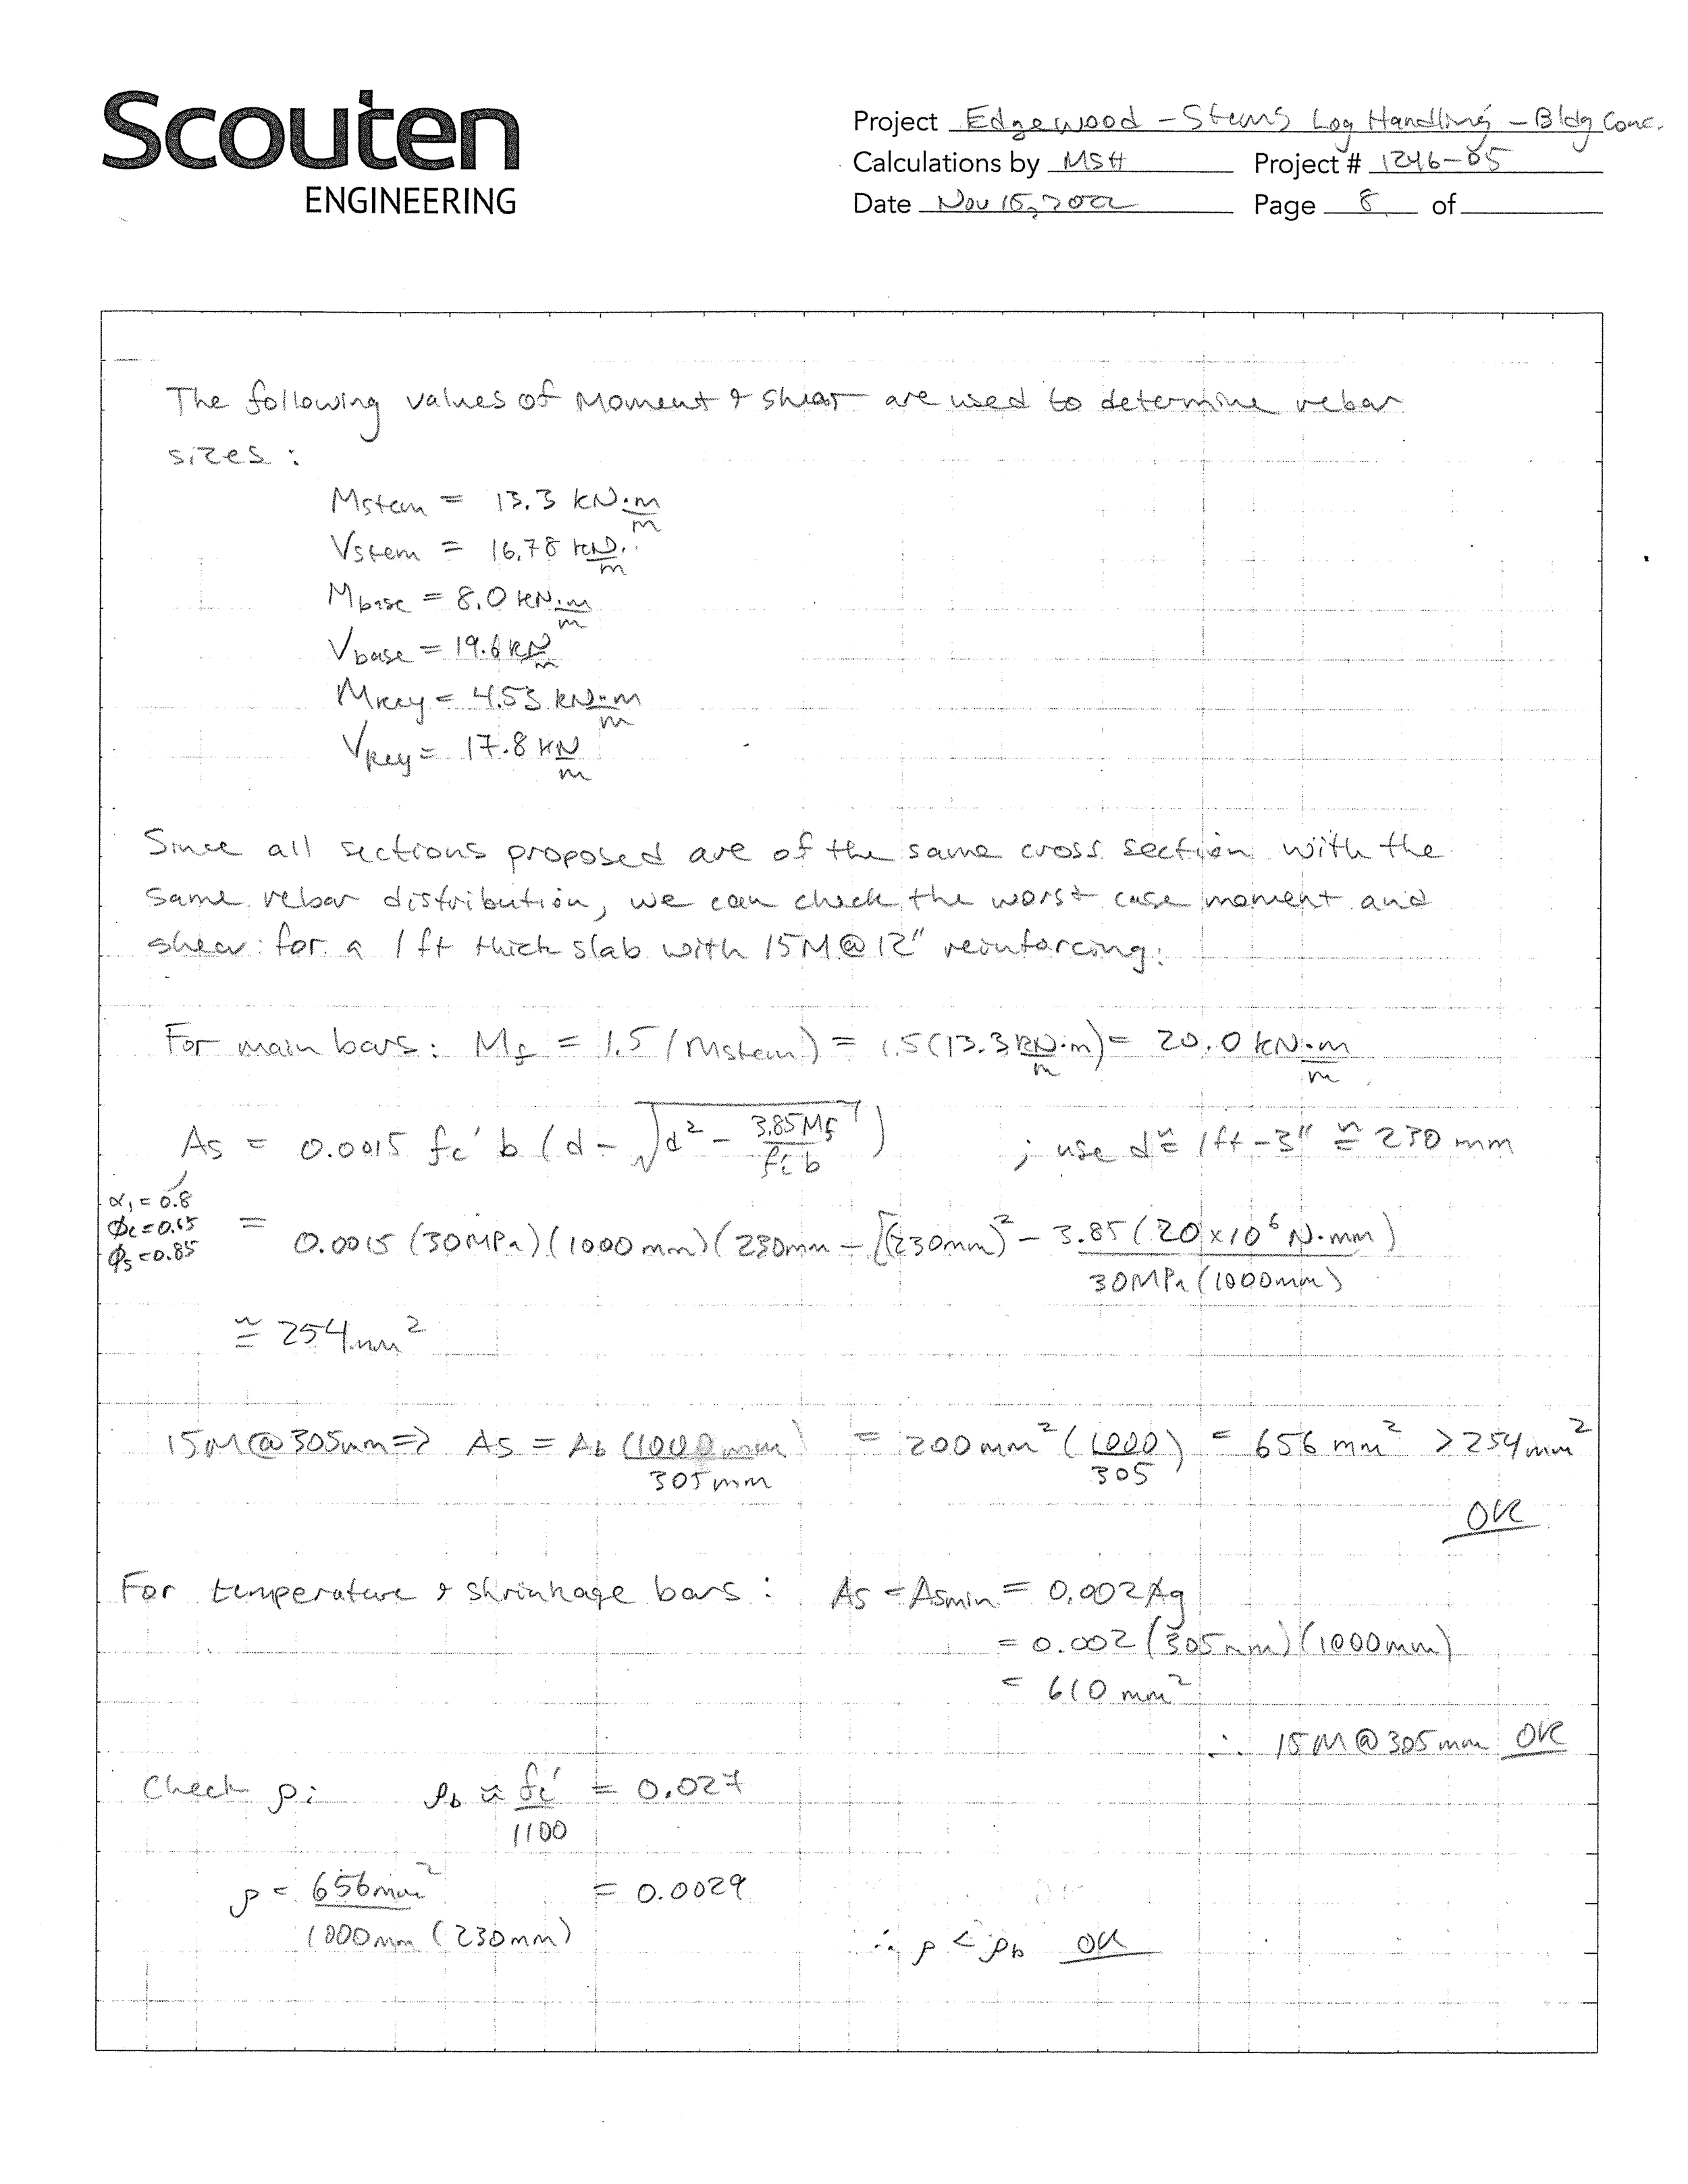 Scouten
ENGINEERING
Project Edgewood - Stems Log Handling - Bldg Conc.
Calculations by MSH Project # 1246-05
Date Nov 15, 2022 Page 8 of
The following values of Moment & Shear are used to determine rebar
sizes:
Mstem = 13.3 kN·m/m
Vstem = 16.78 kN/m
Mbase = 8.0 kN·m/m
Vbase = 19.6 kN/m
Mkey = 4.53 kN·m/m
Vkey = 17.8 kN/m
Since all sections proposed are of the same cross section with the
same rebar distribution, we can check the worst case moment and
shear: for a 1 ft thick slab with 15M@12" reinforcing:
For main bars: Mf = 1.5 (Mstem) = 1.5(13.3 kN·m/m) = 20.0 kN·m/m
As = 0.0015 fc' b (d - √(d² - 3.85Mf/fc'b)) ; use d ≅ 1ft - 3" ≅ 230 mm
α1 = 0.8
ϕc = 0.65
ϕs = 0.85
= 0.0015 (30MPa)(1000mm)(230mm - √((230mm)² - 3.85(20x10⁶ N·mm)/30MPa(1000mm)
≅ 254mm²
15M@305mm => As = Ab (1000mm/305mm) = 200mm² (1000/305) = 656 mm² > 254mm²
OK
For temperature & shrinkage bars: As = Asmin = 0.002Ag
= 0.002 (305mm)(1000mm)
= 610 mm²
∴ 15M@305mm OK
Check ρ: ρb ≈ fc'/1100 = 0.027
ρ = 656mm²/1000mm (230mm) = 0.0029
∴ ρ < ρb OK